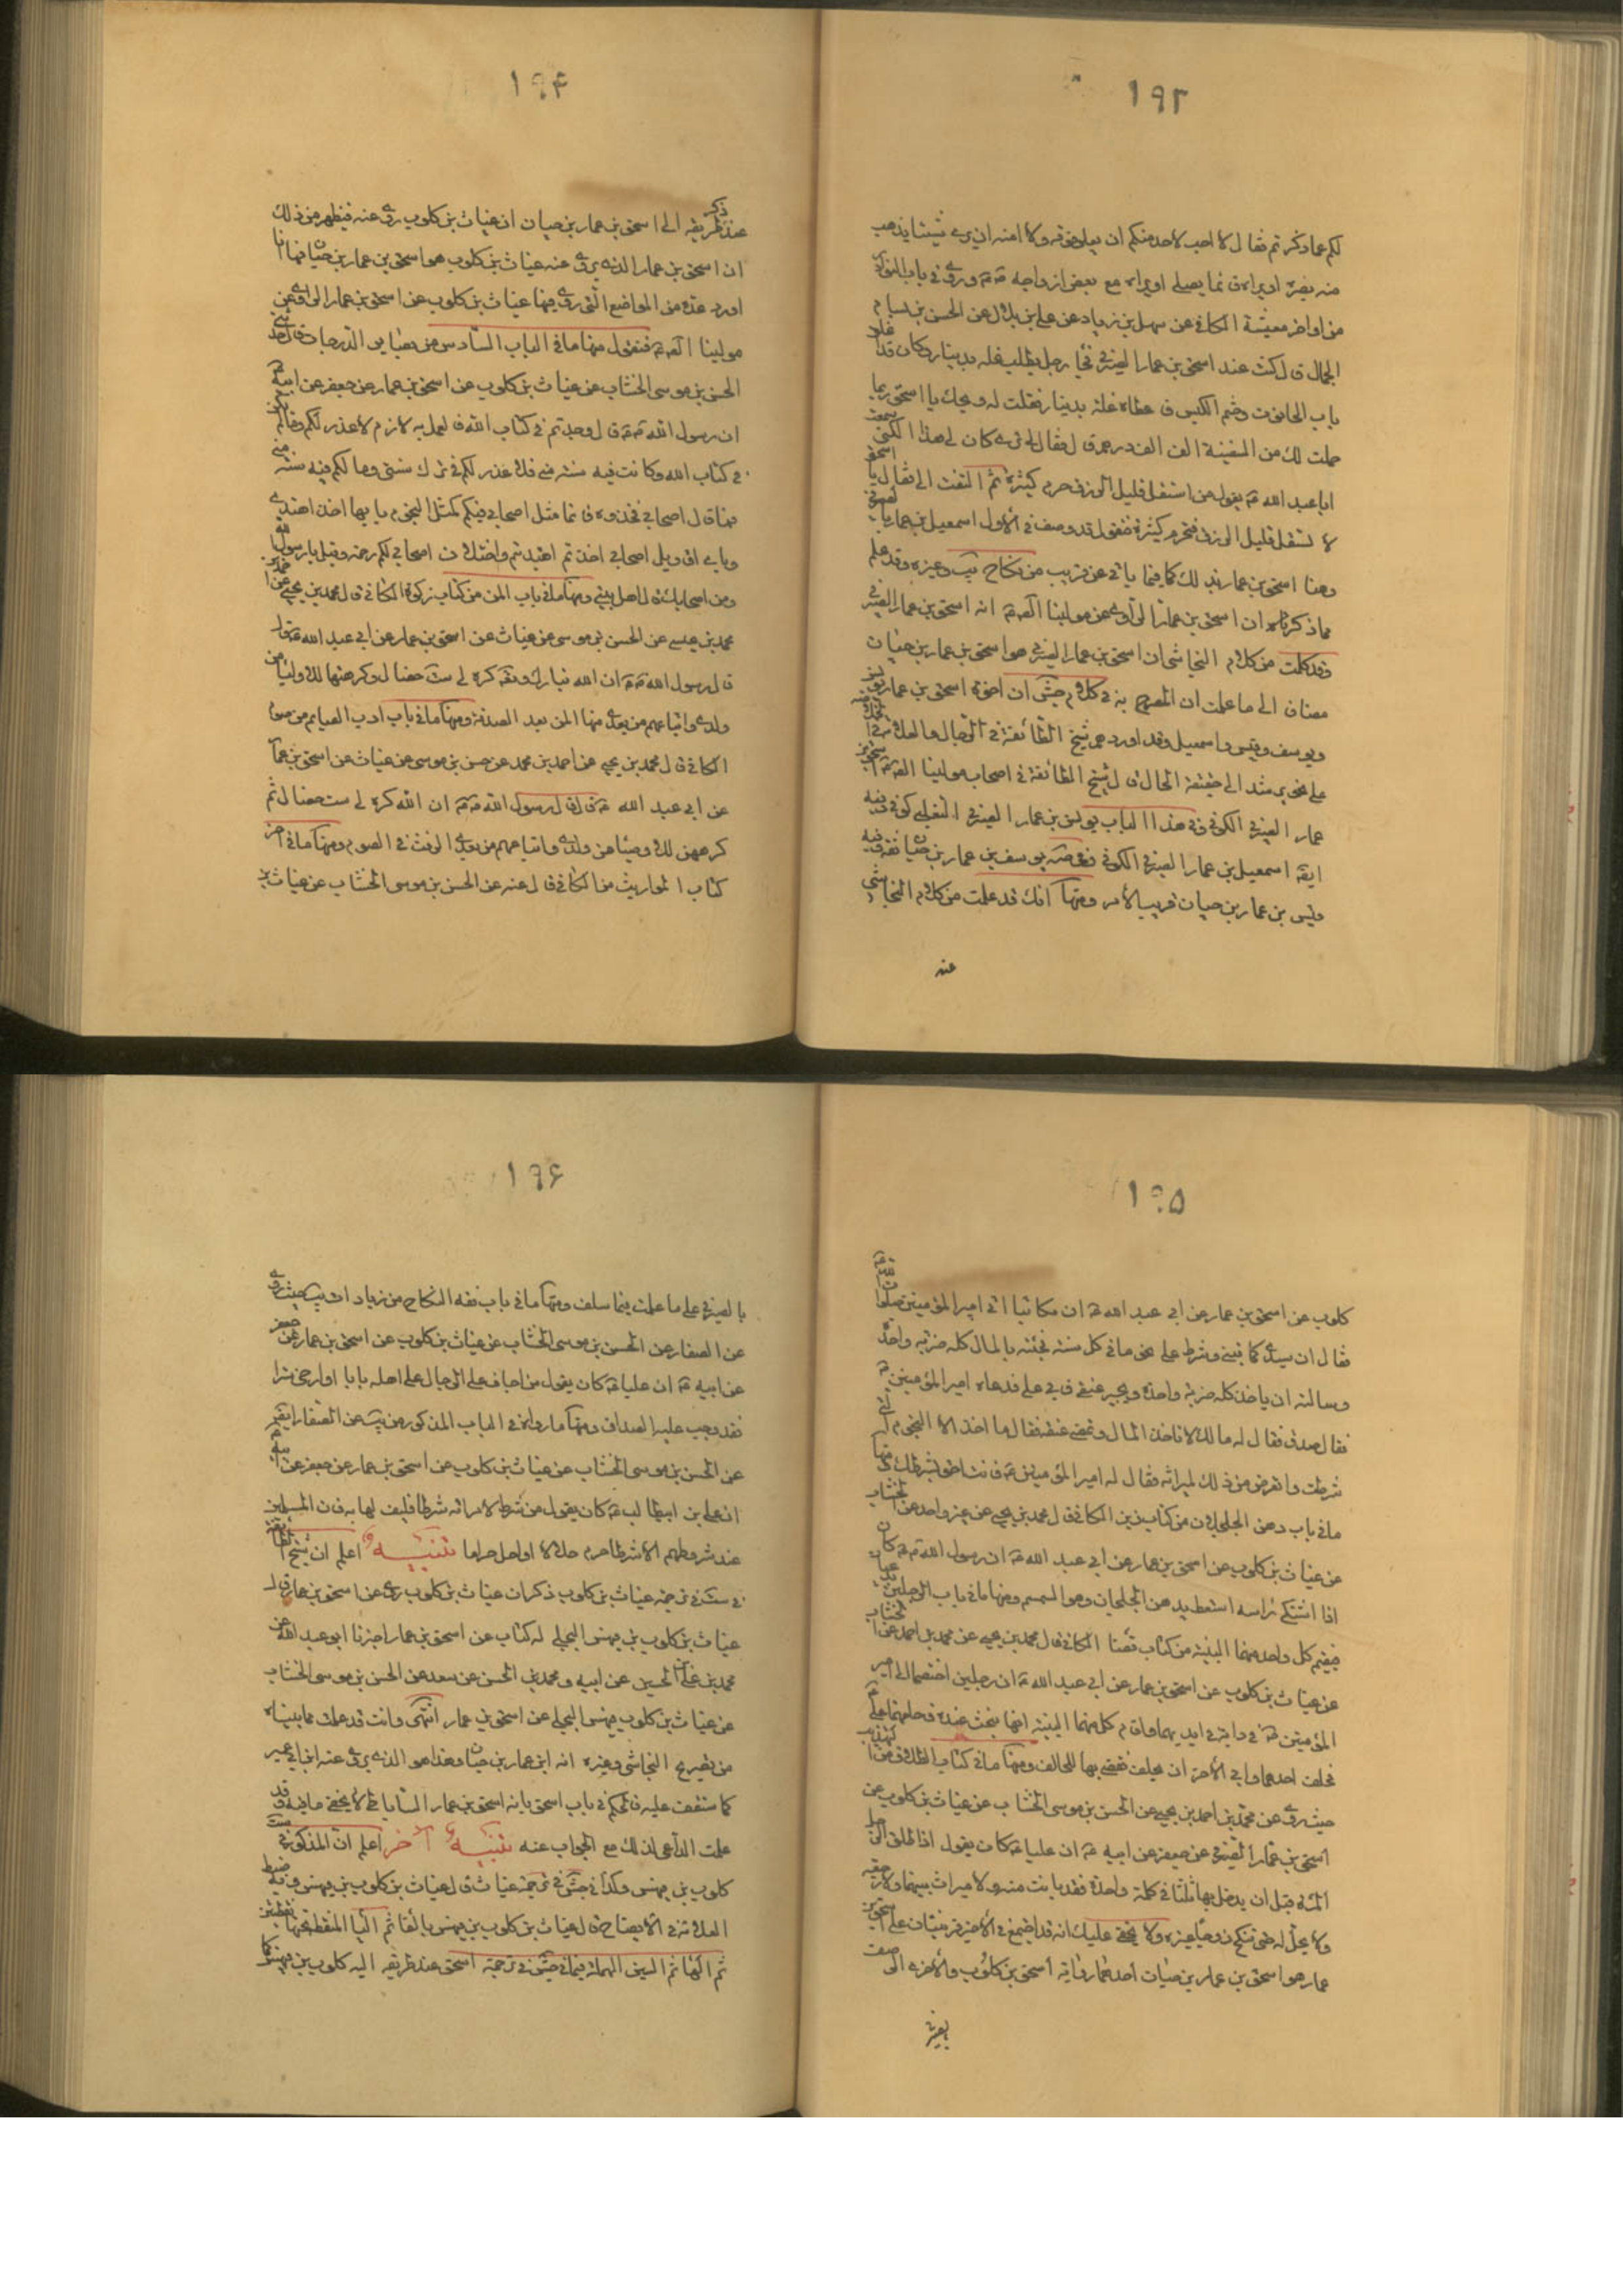 ١٩٣
لكم عما ذكرتم فقال لا احب لاحد منكم ان يعلو فوقه ولا امنه ان يرى شيئا يذهب
منه بصره او يراه قائما يصلي او يراه مع بعض ازواجه وروى في باب النوادر
من اواخر معيشة الكافي عن سهل بن زياد عن علي بن بلال عن الحسن بن بسام
الجمال قال كنت عند اسحق بن عمار الصيرفي فجاء رجل يطلب غلة بدينار وكان قد اغلق
باب الحانوت وختم الكيس فاعطاه غلة بدينار فقلت له ويحك يا اسحق ربما
حملت لك من السفينة الف الف درهم قال فقال لي ترى كان لي هذا لكني سمعت
ابا عبد الله يقول من استقل قليل الرزق حرم كثيره ثم التفت الي فقال يا اسحق
لا تستقل قليل الرزق فتحرم كثيره فنقول قد وصف في الاول اسمعيل بن عمار بالصيرفي
وهنا اسحق بن عمار بذلك كما فيما ياتي عن قريب من نكاح يب وغيره وقد علم
مما ذكرناه ان اسحق بن عمار الراوي عن موالينا انه اسحق بن عمار الصيرفي
وقد علمت من كلام النجاشي ان اسحق بن عمار الصيرفي هو اسحق بن عمار بن حيان
مضافا الى ما علمت ان المصرح به في كلام جش ان اخوة اسحق بن عمار يونس
ويوسف وقيس واسمعيل وقد اوردهم شيخ الطائفة في الرجال والعلامة في الخلاصة
على نحو يرشد الى حقيقة الحال قال شيخ الطائفة في اصحاب موالينا اسحق بن
عمار الصيرفي الكوفي وفي هذا الباب يونس بن عمار الصيرفي التغلبي كوفي وفيه
ايضا اسمعيل بن عمار الصيرفي الكوفي وفي صه يوسف بن عمار بن حيان ثقة وفيه
وقيس بن عمار بن حيان قريب الامر ومنها انك قد علمت من كلام النجاشي
عنه
١٩۴
عند ذكر طريقه الى اسحق بن عمار بن حيان ان غياث بن كلوب روى عنه فيظهر من ذلك
ان اسحق بن عمار الذي يروى عنه غياث بن كلوب هو اسحق بن عمار بن حيان فها انا
اورد عدة من المواضع التي روى فيها غياث بن كلوب عن اسحق بن عمار الراوي عن
موالينا فنقول منها ما في الباب السادس من بصاير الدرجات قال حدثني
الحسن بن موسى الخشاب عن غياث بن كلوب عن اسحق بن عمار عن جعفر عن ابيه
ان رسول الله قال وجدتم في كتاب الله فالعمل به لازم لا عذر لكم وما لم يكن
في كتاب الله وكانت فيه سنة مني فلا عذر لكم في ترك سنتي وما لكم فيه سنة مني
فما قال اصحابي فخذوه فانما مثل اصحابي فيكم كمثل النجوم بايها اخذ اهتدي
وباي اقاويل اصحابي اخذتم اهتديتم واختلاف اصحابي لكم رحمة وقيل يا رسول الله
ومن اصحابك قال اهل بيتي ومنها ما في باب المن من كتاب زكوة الكافي قال محمد بن يحيى عن احمد بن
محمد بن عيسى عن الحسن بن موسى عن غياث عن اسحق بن عمار عن ابي عبد الله قال
قال رسول الله ان الله تبارك وتعه كره لي ست خصال وكرهتها للاوليا من
ولدي واتباعهم من بعدي منها المن بعد الصدقة ومنها ما في باب ادب الصيام من صوم
الكافي قال محمد بن يحيى عن احمد بن محمد عن حسن بن موسى عن غياث عن اسحق بن عمار
عن ابي عبد الله قال قال رسول الله ان الله كره لي ست خصال ثم
كرههن للاوصيا من ولدي واتباعهم من بعدي الرفث في الصوم ومنها ما في اخر
كتاب المواريث من الكافي قال عنه عن الحسن بن موسى الخشاب عن غياث بن
١٩۵
كلوب عن اسحق بن عمار عن ابي عبد الله ان مكاتبا اتى امير المؤمنين صلوات الله عليه
فقال ان سيدي كاتبني وشرط علي نجوما في كل سنة فجئته بالمال كله ضربة واحدة
وسالته ان ياخذ كله ضربة واحدة ويجيز عتقي فابى علي فدعاه امير المؤمنين
فقال صدق فقال له ما لك لا تاخذ المال وتمضي عتقه فقال ما اخذ الا النجوم التي
شرطت واتعرض من ذلك لميراثه فقال له امير المؤمنين فانت احق بشرطك ومنها
ما في باب دهن الجلجلان من كتاب زين الكافي قال محمد بن يحيى عن غير واحد عن الخشاب
عن غياث بن كلوب عن اسحق بن عمار عن ابي عبد الله ان رسول الله كان
اذا اشتكى راسه استعط بدهن الجلجان وهو السمسم ومنها ما في باب الرجلين يدعيان
فيقيم كل واحد منهما البينة من كتاب قضا الكافي قال محمد بن يحيى عن محمد بن احمد عن الخشاب
عن غياث بن كلوب عن اسحق بن عمار عن ابي عبد الله ان رجلين اختصما الى امير
المؤمنين في دابة في ايديهما واقام كل منهما البينة انها نتجت عنده فحلفهما علي
فحلف احدهما وابى الاخر ان يحلف فقضى بها للحالف ومنها ما في كتاب الطلاق من التهذيب
حيث روى عن محمد بن احمد بن يحيى عن الحسن بن موسى الخشاب عن غياث بن كلوب عن
اسحق بن عمار الصيرفي عن جعفر عن ابيه ان عليا كان يقول اذا طلق الرجل
المراة قبل ان يدخل بها ثلثا في كلمة واحدة فقد بانت منه ولا ميراث بينهما ولا رجعة
ولا يحل له حتى تنكح زوجا غيره ولا يخفى عليك انه قد اجتمع في الاخير قرينتان على اسحق بن
عمار هو اسحق بن عمار بن حيان احدهما رواية اسحق بن كلوب والاخرى الوصف
١٩۶
بالصيرفي على ما علمت فيما سلف ومنها ما في باب فقه النكاح من زيادات يب حيث روى
عن الصفار عن الحسن بن موسى الخشاب عن غياث بن كلوب عن اسحق بن عمار عن جعفر
عن ابيه ان عليا كان يقول من اجاف على الرجال على اهله بابا او ارخى سترا
فقد وجب عليه الصداق ومنها ما رواه في الباب المذكور من يب عن الصفار ايضا
عن الحسن بن موسى الخشاب عن غياث بن كلوب عن اسحق بن عمار عن جعفر عن ابيه
ان علي بن ابيطالب كان يقول من شرط لامراته شرطا فليف لها به فان المسلمين
عند شروطهم الا شرطا حرم حلالا او احل حراما تنبيه اعلم ان شيخ الطائفة
في ست في ترجمة غياث بن كلوب ذكر ان غياث بن كلوب روى عن اسحق بن عمار قال
غياث بن كلوب بن بيهس البجلي له كتاب عن اسحق بن عمار اخبرنا ابو عبد الله عن
محمد بن علي بن الحسين عن ابيه ومحمد بن الحسن عن سعد عن الحسن بن موسى الخشاب
عن غياث بن كلوب بيهس البجلي عن اسحق بن عمار انتهى وانت قد علمت مما بيناه
من تصريح النجاشي وغيره انه ابن عمار بن حيان وهذا هو الذي يروى عنه ابن ابي عمير
كما ستقف عليه فالحكم في باب اسحق بانه اسحق بن عمار الساباطي لا يخفى ما فيه وقد
علمت الداعي لذلك مع الجواب عنه تنبيه آخر اعلم ان المذكور في ست
كلوب بن بيهس وكذا في جش في ترجمة غياث قال غياث بن كلوب بن بيهس وفيه ضبط
العلامة في الايضاح قال غياث بن كلوب بن بيهس بالفا ثم اليا المنقطة تحتها نقطتين
ثم الها ثم السين المهملة فيما في جش في ترجمة اسحق عند طريقه اليه كلوب بن بيهس كما